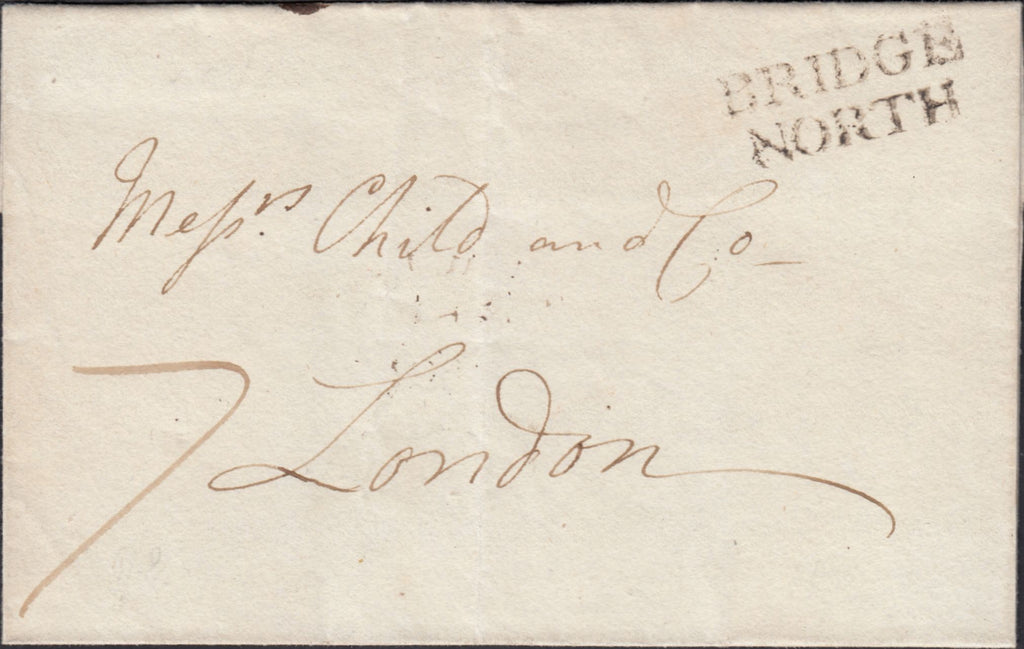 BRIDGE
NORTH
Meſsrs. Child and Co
7
London